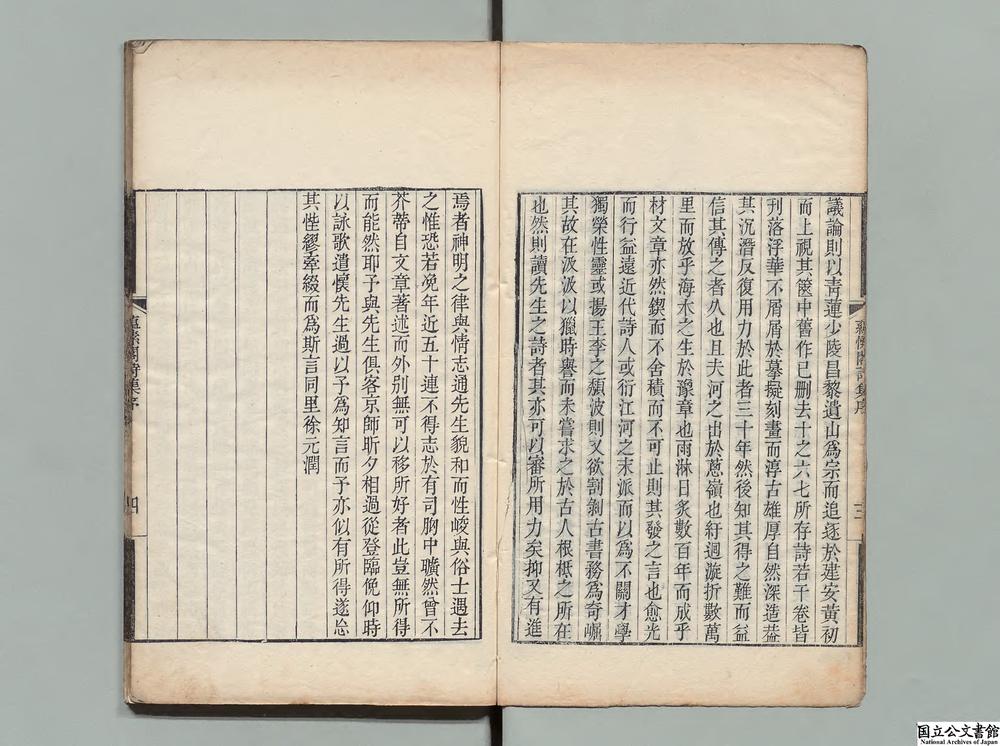 議論則以青蓮少陵昌黎遺山爲宗而追逐於建安黃初
而上視其篋中舊作已刪去十之六七所存詩若干卷皆
刊落浮華不屑屑於摹擬刻畫而淳古雄厚自然深造葢
其沉潛反復用力於此者三十年然後知其得之難而益
信其傳之者久也且夫河之出於蔥嶺也紆迴漩折數萬
里而放乎海木之生於豫章也雨淋日炙數百年而成乎
材文章亦然鍥而不舍積而不可止則其發之言也愈光
而行益遠近代詩人或衍江河之末派而以爲不關才學
獨榮性靈或揚王李之頽波則又欲割剝古書務爲奇崛
其故在汲汲以獵時譽而未嘗求之於古人根柢之所在
也然則讀先生之詩者其亦可以審所用力矣抑又有進
三
焉者神明之律與情志通先生貌和而性峻與俗士遇去
之惟恐若凂年近五十連不得志於有司胸中曠然曾不
芥蔕自文章著述而外別無可以移所好者此豈無所得
而能然耶予與先生俱客京師昕夕相過從登臨俛仰時
以詠歌遣懷先生過以予爲知言而予亦似有所得遂忘
其性繆牽綴而爲斯言同里徐元潤
詩集序
四
国立公文書館
National Archives of Japan